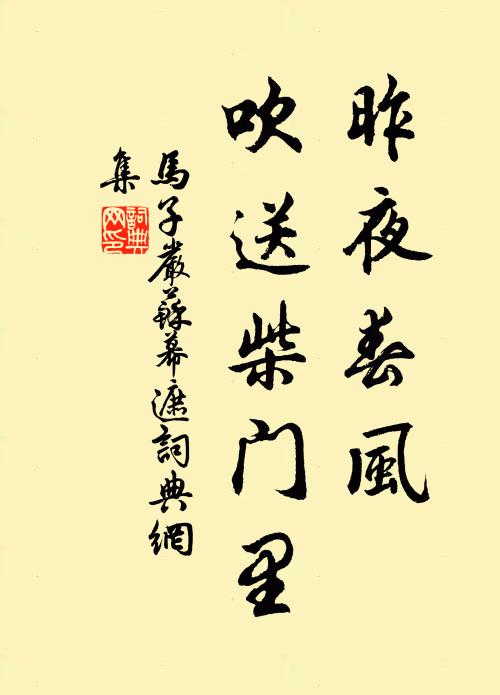 昨夜春風
吹送柴门里
馬子嚴蘇幕遮詞典網
集
詞典
网印